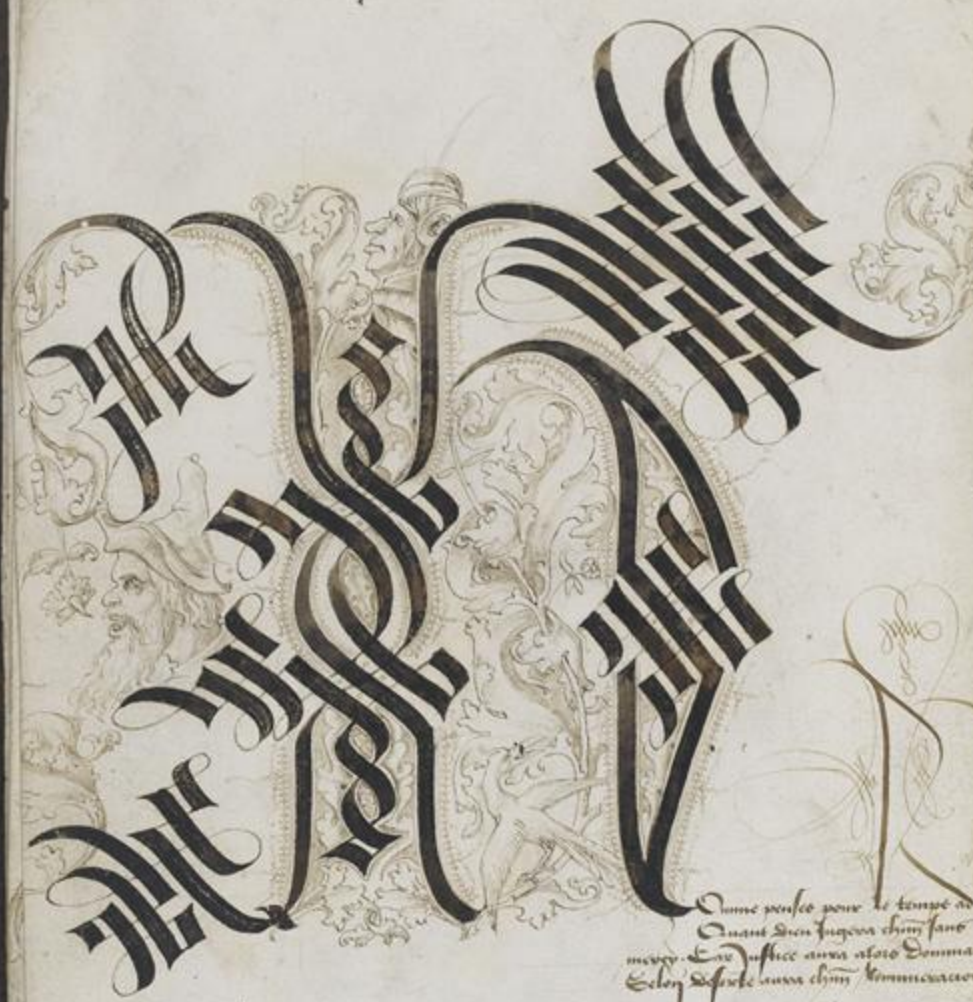 Omme penses pour le temps ad
Quant dieu Jugera chũn sans
mercy. Car Justice aura alors Domina
Selon deserte aura chũn Remuneracio